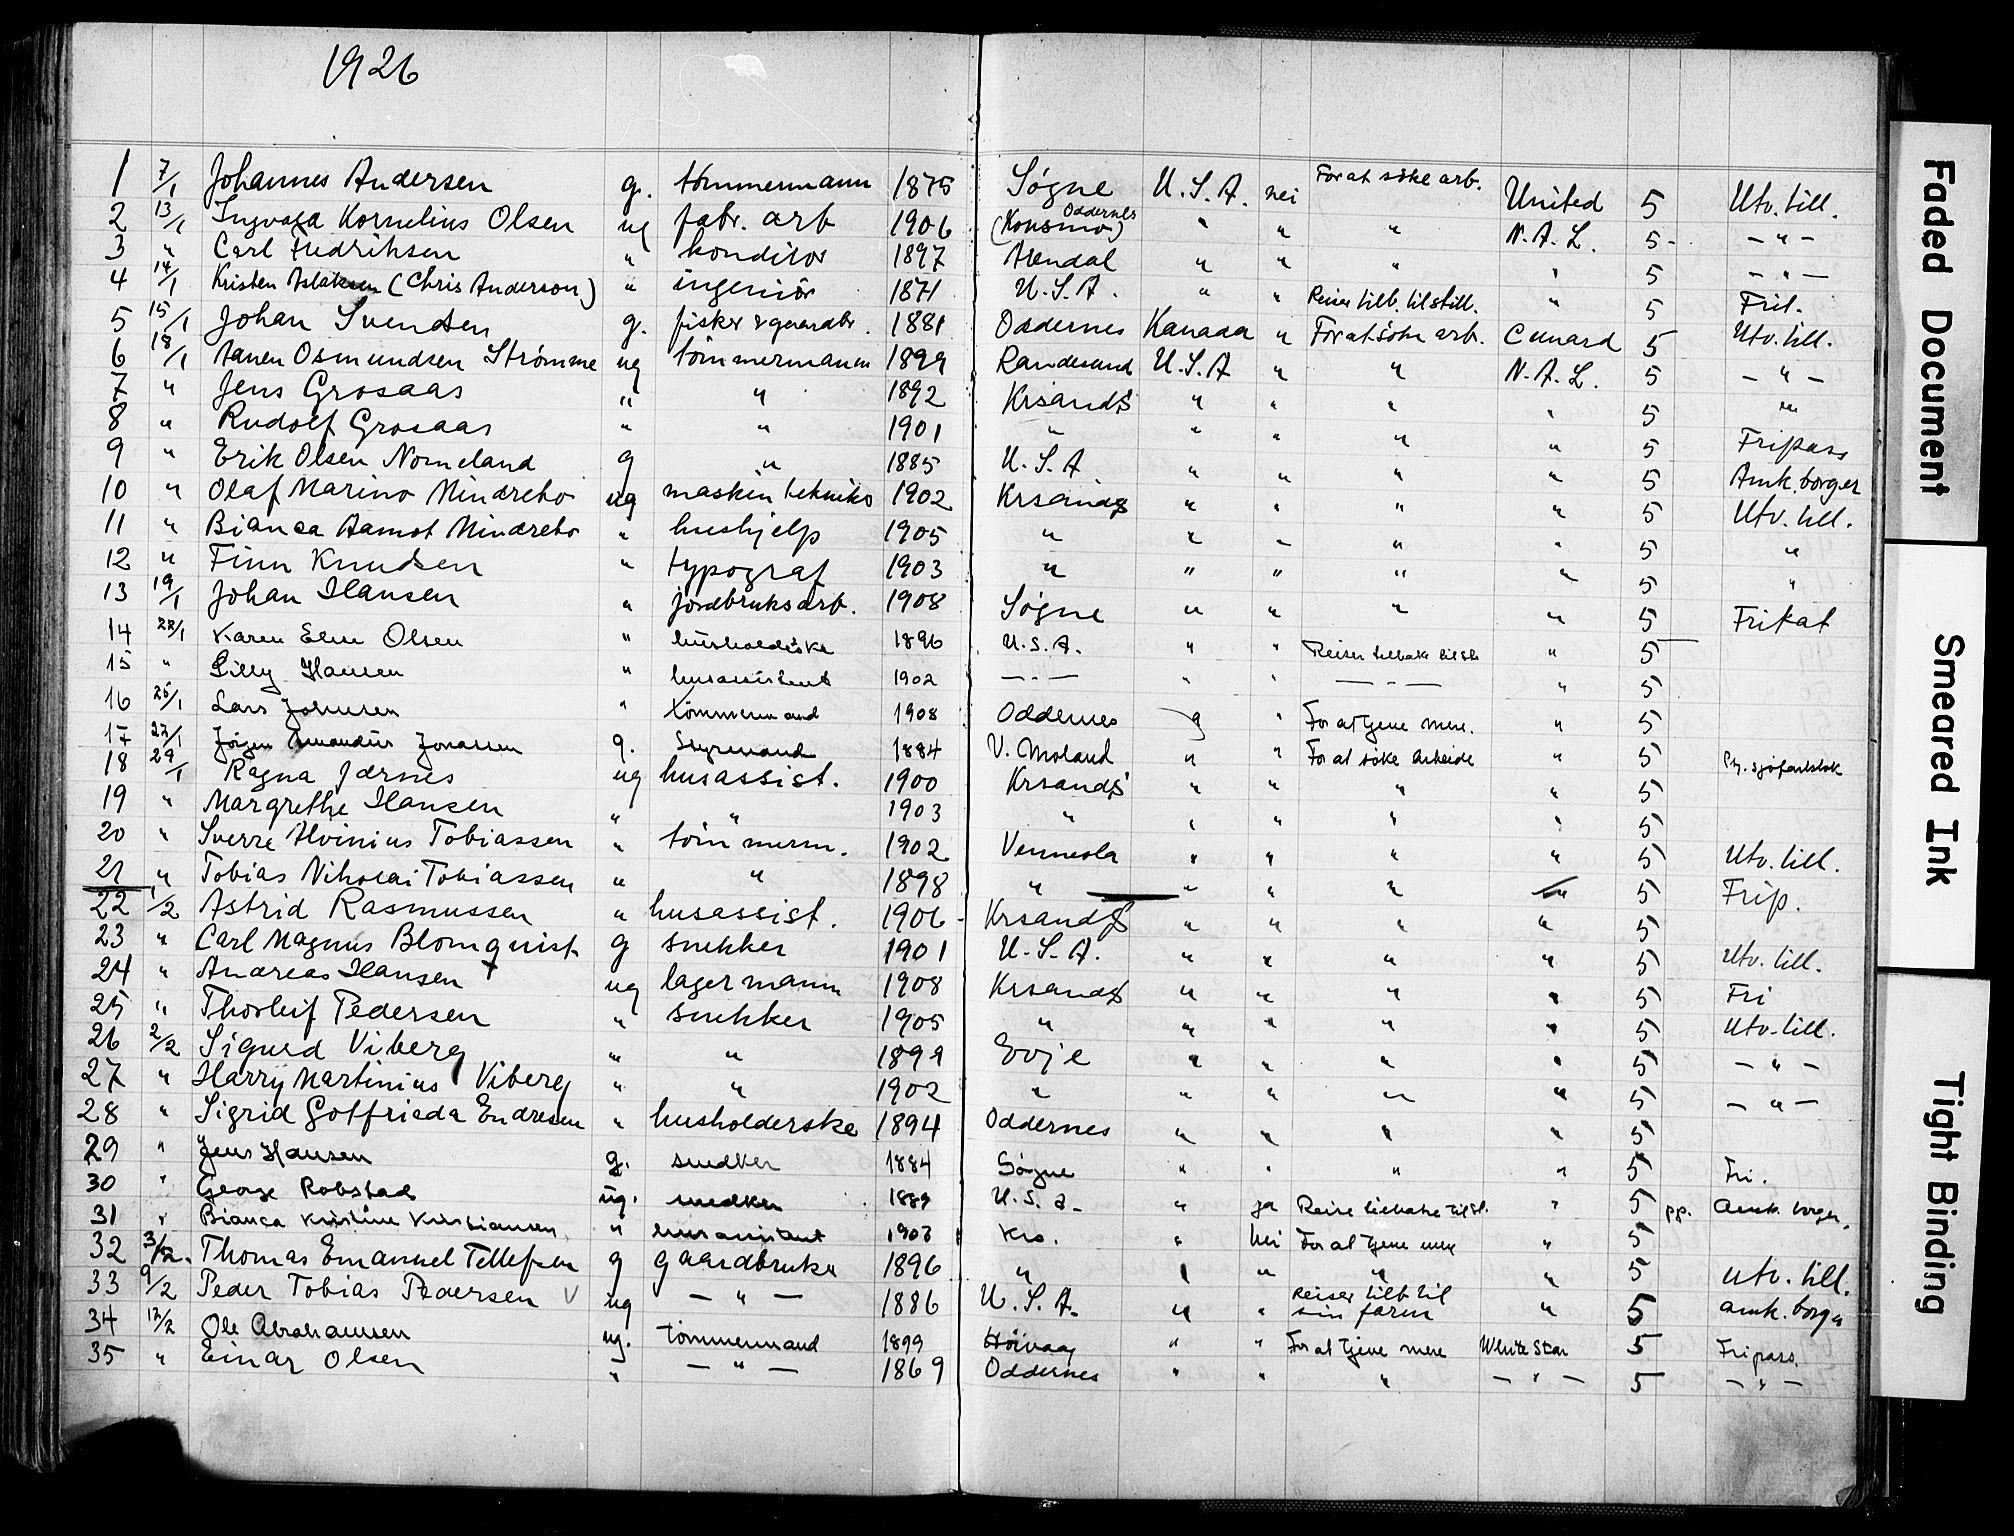 1926
1 7/1 Johannes Andersen g. tömmermann 1875 Søgne U.S.A. nei For at söke arb. United 5 Utv. till.
2 13/1 Ingvald Kornelius Olsen ug fabr. arb 1906 Oddernes (Konsmo) " " " N.A.L. 5- – " –
3 " Carl Fredriksen " konditor 1897 Arendal " " " " 5 – " –
4 14/1 Kristen Aslaksen (Chris Anderson) " ingeniör 1871 U.S.A. " " Reiser tilb. til still. " 5 Frit.
5 15/1 Johan Svendsen g. fisker & gaardbr. 1881 Oddernes Kanada " For at söke arb. Cunard 5 Utv. till.
6 18/1 Aanen Osmundsen Strømme ug tömmermann 1899 Randesund U.S.A " " N.A.L. 5 – " –
7 " Jens Grosaas " " 1892 Krsands " " " " 5 "
8 " Rudolf Grosaas " " 1901 " " " " " 5 Fripass
9 " Erik Olsen Nomeland g " 1885 U.S.A " " " " 5 Amk. borger
10 " Olaf Marino Mindrebo ug maskin tekniks 1902 Krsands " " " " 5 Utv. till.
11 " Bianca Aamot Mindrebo " hushjelp 1905 " " " " " 5 "
12 " Finn Knudsen " typograf 1903 " " " " " 5 "
13 19/1 Johan Hansen " jordbruksarb. 1908 Søgne " " " " 5 Frikat
14 22/1 Karen Olsen " husholderske 1896 U.S.A. " " Reiser tilbake til st. " 5
15 " Lilly Hansen " husassistent 1902 – " – " " – " – " 5
16 25/1 Lars Johnsen " tömmermand 1908 Oddernes " " For at tjene mere. " 5
17 27/1 Jörgen Amandus Jonassen g. Styrmand 1884 V. Moland " " For at söke arbeide " 5
18 29/1 Ragna Jærnes ug husassist. 1900 Krsands " " " " 5
19 " Margrethe Hansen " " 1903 " " " " " 5
20 " Sverre Alvinius Tobiassen " tömmerm. 1902 Vennesla " " " " 5 Utv. till.
21 " Tobias Nikolai Tobiassen " " 1898 " " " " " 5 Frip.
22 1/2 Astrid Rasmussen " husassist. 1906 Krsands " " " " 5
23 " Carl Magnus Blomquist g snekker 1901 U.S.A. " " " " 5 Utv. till.
24 " Andreas Hansen ug lagermann 1908 Krsands " " " " 5 Fri
25 " Thorleif Pedersen " snekker 1905 " " " " " 5 Utv. till.
26 2/2 Sigurd Viberg " " 1899 Evje " " " " 5 – " –
27 " Harry Martinius Viberg " " 1902 " " " " " 5 – " –
28 " Sigrid Gotfrieda Endresen " husholderske 1894 Oddernes " " " " 5
29 " Jens Hansen g. snedker 1884 Søgne " " " " 5 Fri.
30 " George Robstad ug. snedker 1889 U.S.A. " ja Reise tilbake til st. " 5 pp. Amk. borger.
31 " Bianca Kristine Kristiansen " husassistent 1903 Krs. " nei For at tjene mere " 5
32 3/2. Thomas Emanuel Tellefsen g gaardbruker 1896 " " " " " 5 Utv. till.
33 9/2 Peder Tobias Pedersen ug – " – 1886 U.S.A. " " Reiser tilb til sin farm " 5 amk. borger
34 12/2 Ole Abrahamsen ug. tömmermand 1899 Höivaag " " For at tjene mere White Star 5 Fripass.
35 " Einar Olsen " – " – 1869 Oddernes " " " – " – 5 – " –
Faded Document
Smeared Ink
Tight Binding